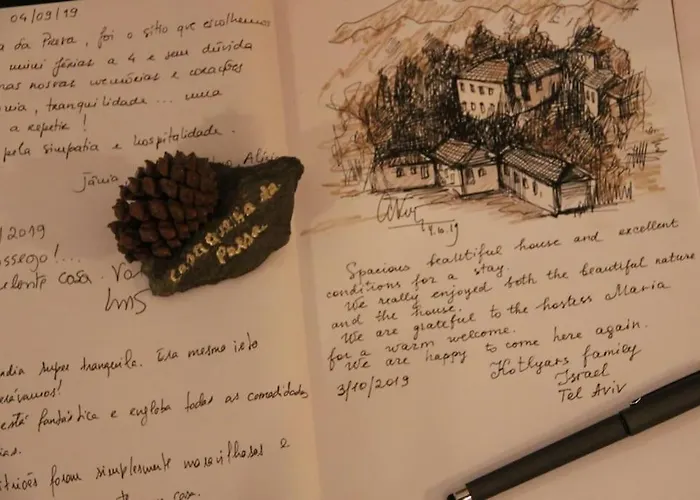 04/09/19
da Passa, foi o sítio que escolhemos
mini férias a 4 e sem dúvida
nas nossas memórias e corações
tranquilidade... uma
a repetir!
pela simpatia e hospitalidade.
Tânia
/2019
ossego!...
elente casa.
super tranquila. Era mesmo isto
está fantástica e engloba todas as comodidades
foram simplesmente maravilhosas e
casa.
casaquinha da
Passa
4.10.19
Spacious beautiful house and excellent
conditions for a stay.
We really enjoyed both the beautiful nature
and the house.
We are grateful to the hostess Maria
for a warm welcome.
We are happy to come here again.
3/10/2019
Kotlyars family
Israel
Tel Aviv